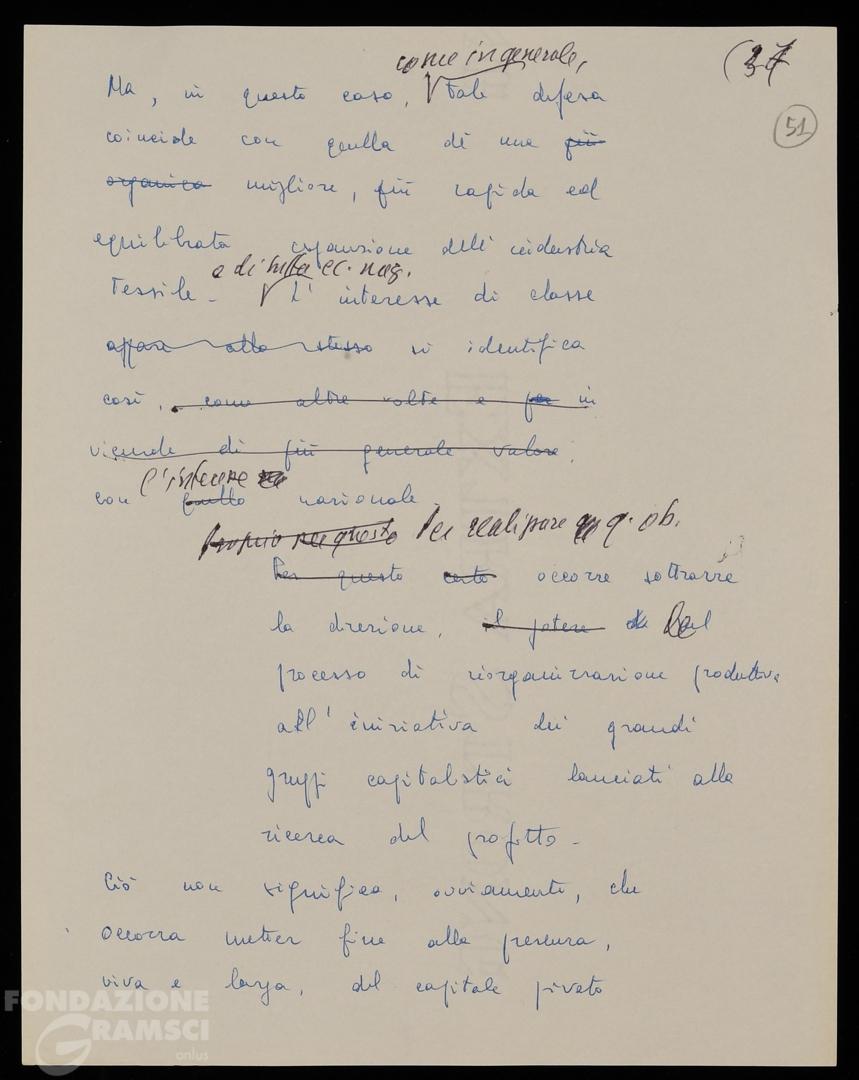 come in generale,
(37
51
Ma, in questo caso, tale difesa
coincide con quella di una più
organica migliore, più rapida ed
equilibrata espansione dell'industria
e di tutta ec. naz.
Tessile. L'interesse di classe
appare allo stesso si identifica
così, come altre volte e per in
vicende di più generale valore,
l'interesse
con quello nazionale.
Proprio per questo Per realizzare q. ob.
Per questo certo occorre sottrarre
la direzione, il potere del
processo di riorganizzazione produttiva
all'iniziativa dei grandi
gruppi capitalistici lanciati alla
ricerca del profitto.
Ciò non significa, ovviamente, che
occorra metter fine alla presenza,
viva e larga, del capitale privato
FONDAZIONE
GRAMSCI
onlus